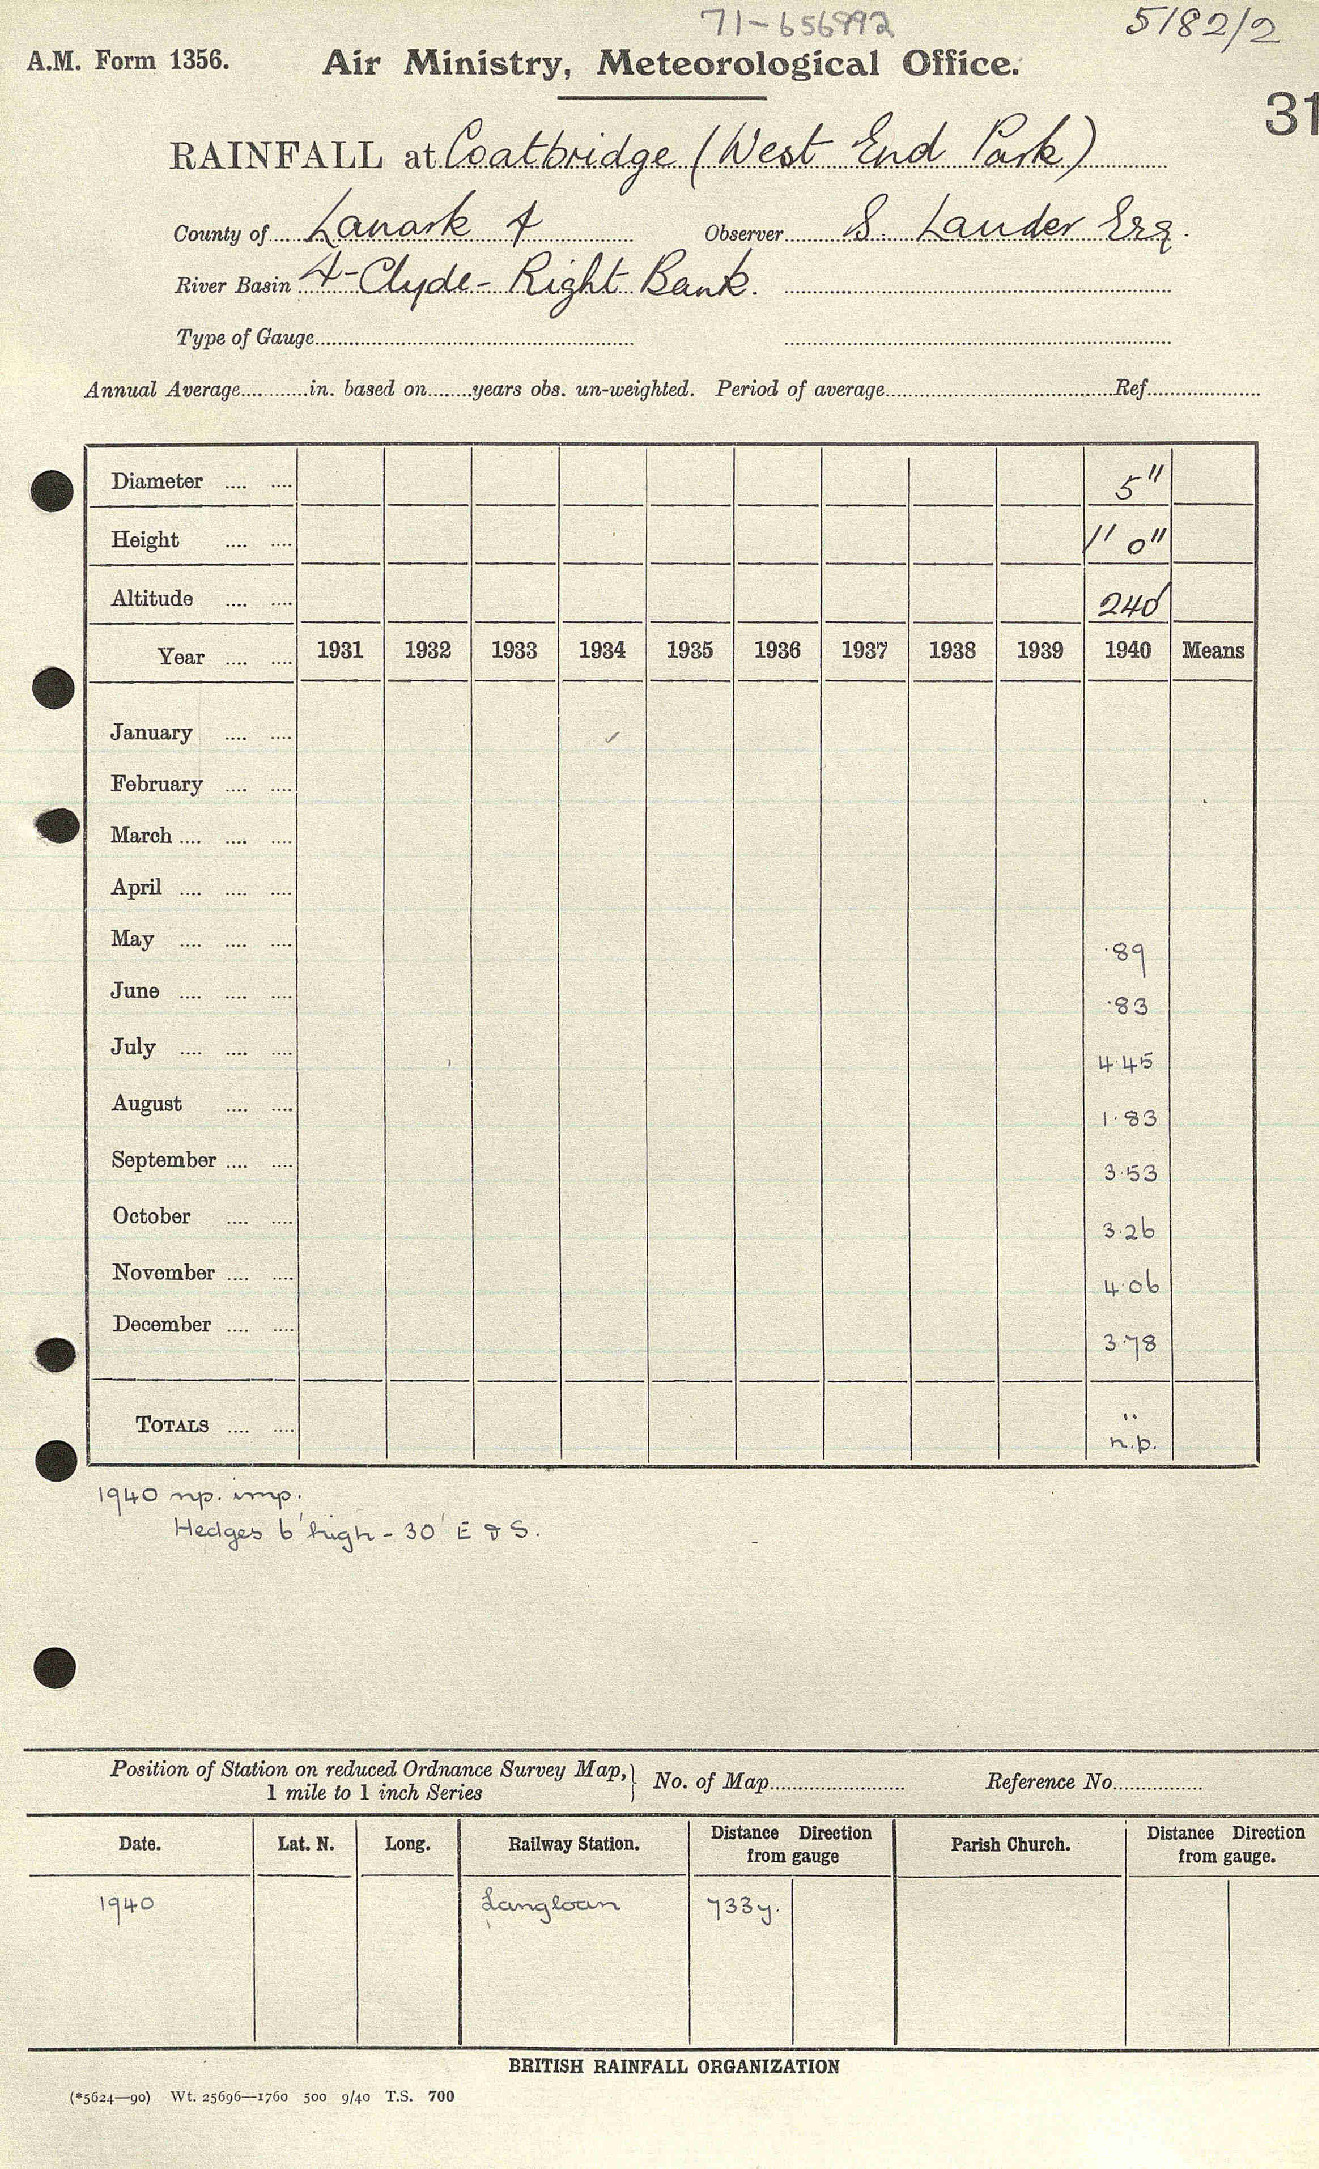 71-656992
5182/2
A.M. Form 1356.
Air Ministry, Meteorological Office.
31
RAINFALL at Coatbridge (West End Park)
County of Lanark 4 Observer S. Lauder Esq.
River Basin 4-Clyde-Right Bank.
Type of Gauge
Annual Average in. based on years obs. un-weighted. Period of average Ref.
Diameter 5"
Height 1' 0"
Altitude 240'
Year 1931 1932 1933 1934 1935 1936 1937 1938 1939 1940 Means
January
February
March
April
May ·89
June ·83
July 4·45
August 1·83
September 3·53
October 3·26
November 4·06
December 3·78
TOTALS ..
n.p.
1940 np. imp.
Hedges 6' high - 30' E & S.
Position of Station on reduced Ordnance Survey Map, No. of Map Reference No.
1 mile to 1 inch Series
Date. Lat. N. Long. Railway Station. Distance Direction from gauge Parish Church. Distance Direction from gauge.
1940 Langloan 733y.
BRITISH RAINFALL ORGANIZATION
(*5624—90) Wt. 25696—1760 500 9/40 T.S. 700